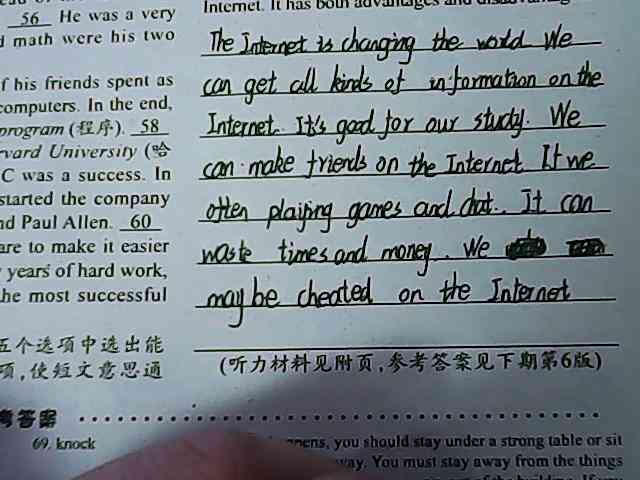 56 He was a very
math were his two
f his friends spent as
computers. In the end,
program (程序). 58
vard University (哈
C was a success. In
started the company
nd Paul Allen. 60
are to make it easier
years of hard work,
he most successful
五个选项中选出能
项,使短文意思通
Internet. It has both advantages and
The Internet is changing the world We
can get all kinds of information on the
Internet. It's good for our study. We
can make friends on the Internet If we
often plaijing games and chat. It can
waste times and money. We
may be cheated on the Internet
(听力材料见附页,参考答案见下期第6版)
考答案
69. knock
ppens, you should stay under a strong table or sit
way. You must stay away from the things